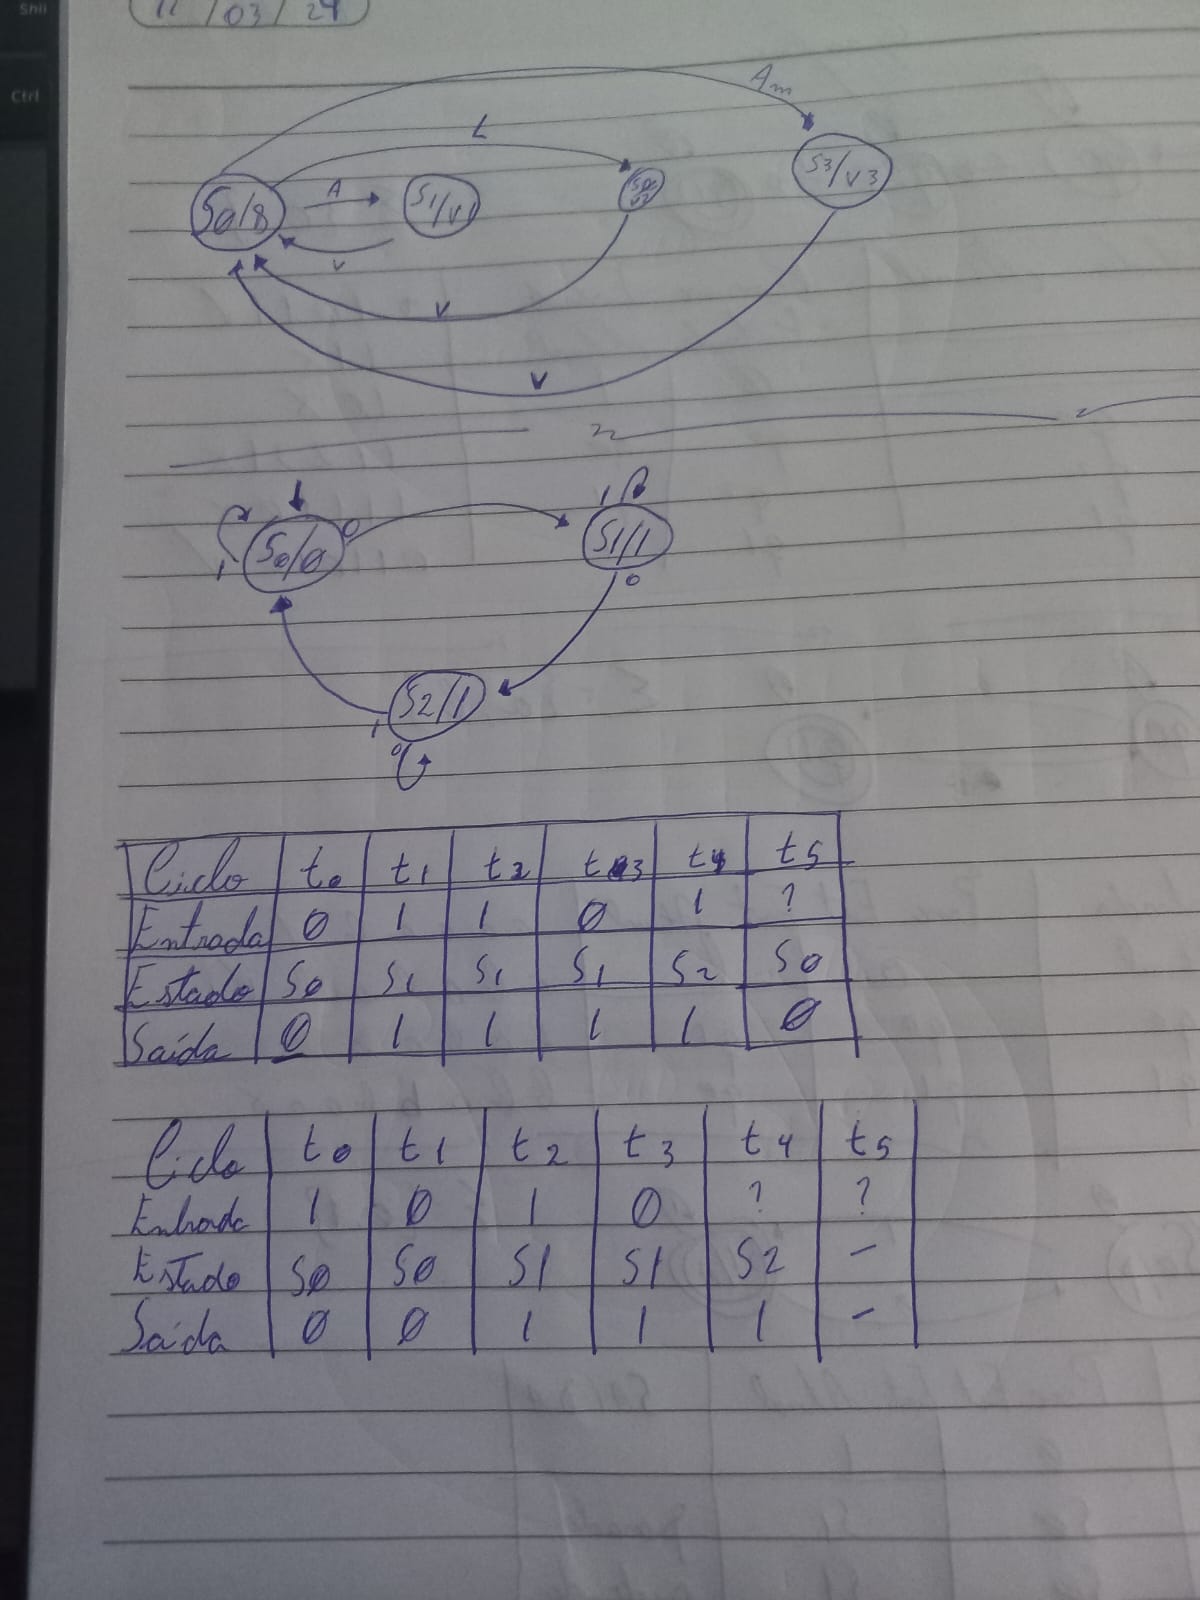 Shif
Ctrl
11/03/24
Am
L
S0/8 A S1/V1 S3/V3
V
V
V
1
S0/0 0 S1/1
1 0
S2/1
1
0
Ciclo t0 t1 t2 t3 t4 t5
Entrada 0 1 1 0 1 ?
Estado S0 S1 S1 S1 S2 S0
Saída 0 1 1 1 1 0
Ciclo t0 t1 t2 t3 t4 t5
Entrada 1 0 1 0 ? ?
Estado S0 S0 S1 S1 S2 -
Saída 0 0 1 1 1 -